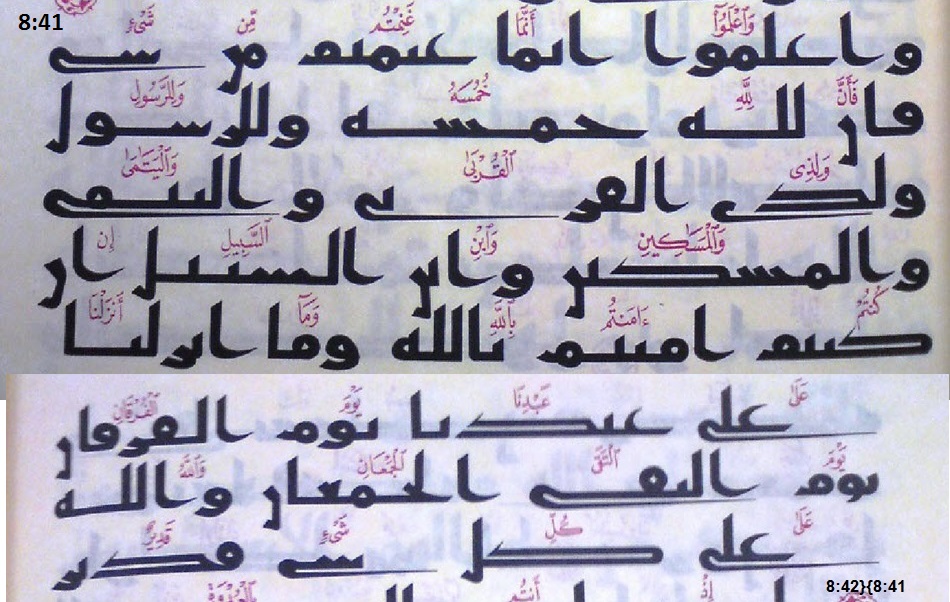 8:41
وَٱعْلَمُوٓا۟ أَنَّمَا غَنِمْتُم مِّن شَىْءٍ
واعلموا انما غنمتم من شي
فَأَنَّ لِلَّهِ خُمُسَهُۥ وَلِلرَّسُولِ
فان لله خمسه وللرسول
وَلِذِى ٱلْقُرْبَىٰ وَٱلْيَتَٰمَىٰ
ولذي القربى واليتمى
وَٱلْمَسَٰكِينِ وَٱبْنِ ٱلسَّبِيلِ إِن
والمسكين وابن السبيل ان
كُنتُمْ ءَامَنتُم بِٱللَّهِ وَمَآ أَنزَلْنَا
كنتم امنتم بالله وما انزلنا
عَلَىٰ عَبْدِنَا يَوْمَ ٱلْفُرْقَانِ
على عبدنا يوم الفرقان
يَوْمَ ٱلْتَقَى ٱلْجَمْعَانِ وَٱللَّهُ
يوم التقى الجمعان والله
عَلَىٰ كُلِّ شَىْءٍ قَدِيرٌ
على كل شي قدير
إِذْ أَنتُم بِٱلْعُدْوَةِ
8:42}{8:41